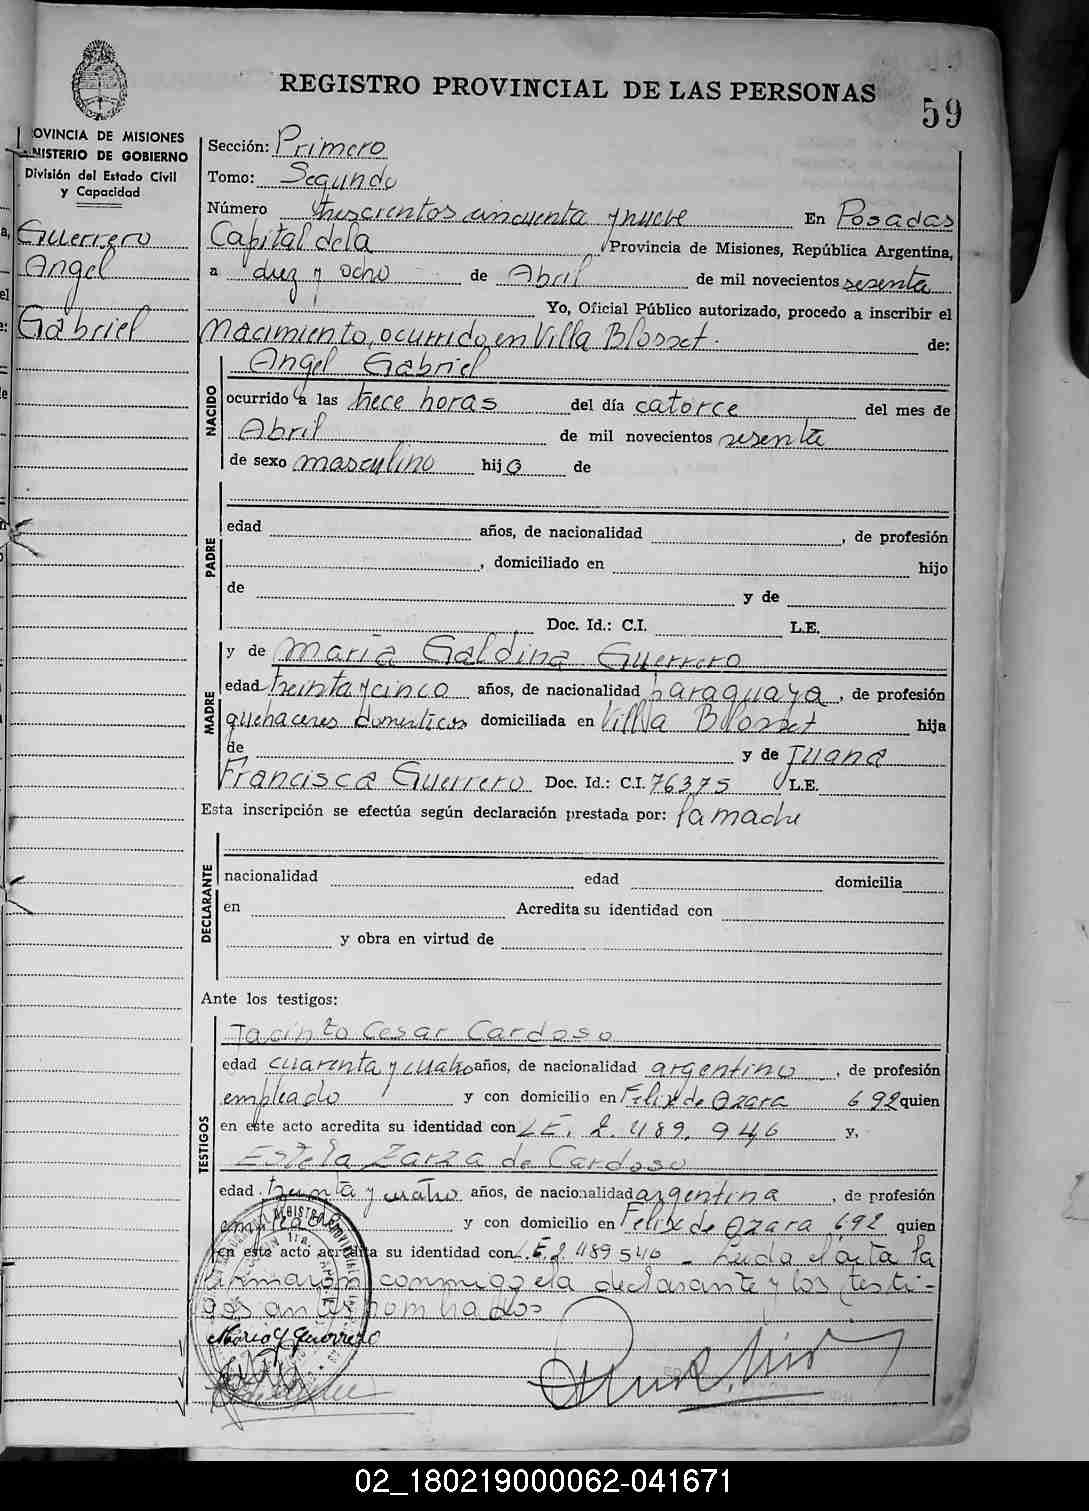 REGISTRO PROVINCIAL DE LAS PERSONAS
59
PROVINCIA DE MISIONES
MINISTERIO DE GOBIERNO
División del Estado Civil
y Capacidad
Guerrero
Angel
Gabriel
Sección: Primero
Tomo: Segundo
Número trescientos cincuenta y nueve En Posadas
Capital de la Provincia de Misiones, República Argentina,
a diez y ocho de Abril de mil novecientos sesenta
Yo, Oficial Público autorizado, procedo a inscribir el
Nacimiento, ocurrido en Villa Blosset. de:
NACIDO
Angel Gabriel
ocurrido a las trece horas del día catorce del mes de
Abril de mil novecientos sesenta
de sexo masculino hijo de
PADRE
edad años, de nacionalidad , de profesión
, domiciliado en hijo
de y de
Doc. Id.: C.I. L.E.
MADRE
y de Maria Galdina Guerrero
edad treinta y cinco años, de nacionalidad paraguaya, de profesión
quehaceres domesticos domiciliada en Villa Blosset hija
de y de Juana
Francisca Guerrero Doc. Id.: C.I. 76375 L.E.
Esta inscripción se efectúa según declaración prestada por: la madre
DECLARANTE
nacionalidad edad domicilia
en Acredita su identidad con
y obra en virtud de
Ante los testigos:
TESTIGOS
Jacinto Cesar Cardoso
edad cuarenta y cuatro años, de nacionalidad argentino, de profesión
empleado y con domicilio en Felix de Azara 692 quien
en este acto acredita su identidad con L.E. 2.489.946 y,
Estela Zarza de Cardoso
edad treinta y cuatro años, de nacionalidad argentina, de profesión
empleada y con domicilio en Felix de Azara 692 quien
en este acto acredita su identidad con L.E. 2 489 546 - Leida el acta la
firmaron conmigo la declarante y los testi-
gos antes nombrados
Maria G Guerrero
02_180219000062-041671